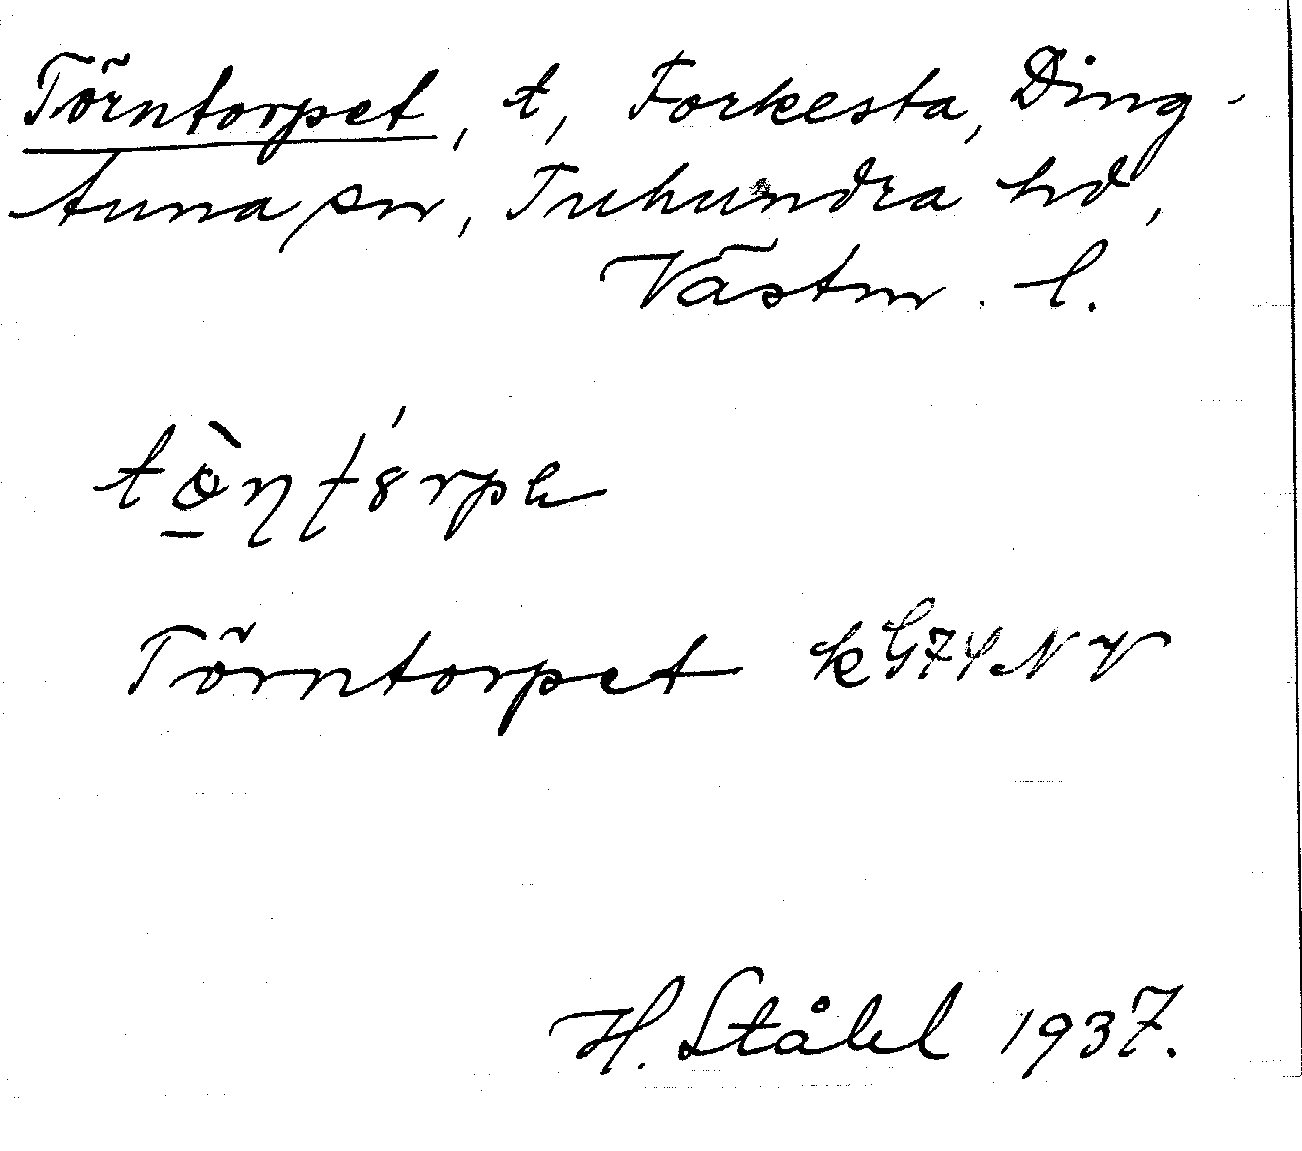 Törntorpet, t, Forkesta, Ding-
tuna sn, Tuhundra hd,
Västm. l.
Törntorpet k
H. Ståhl 1937.